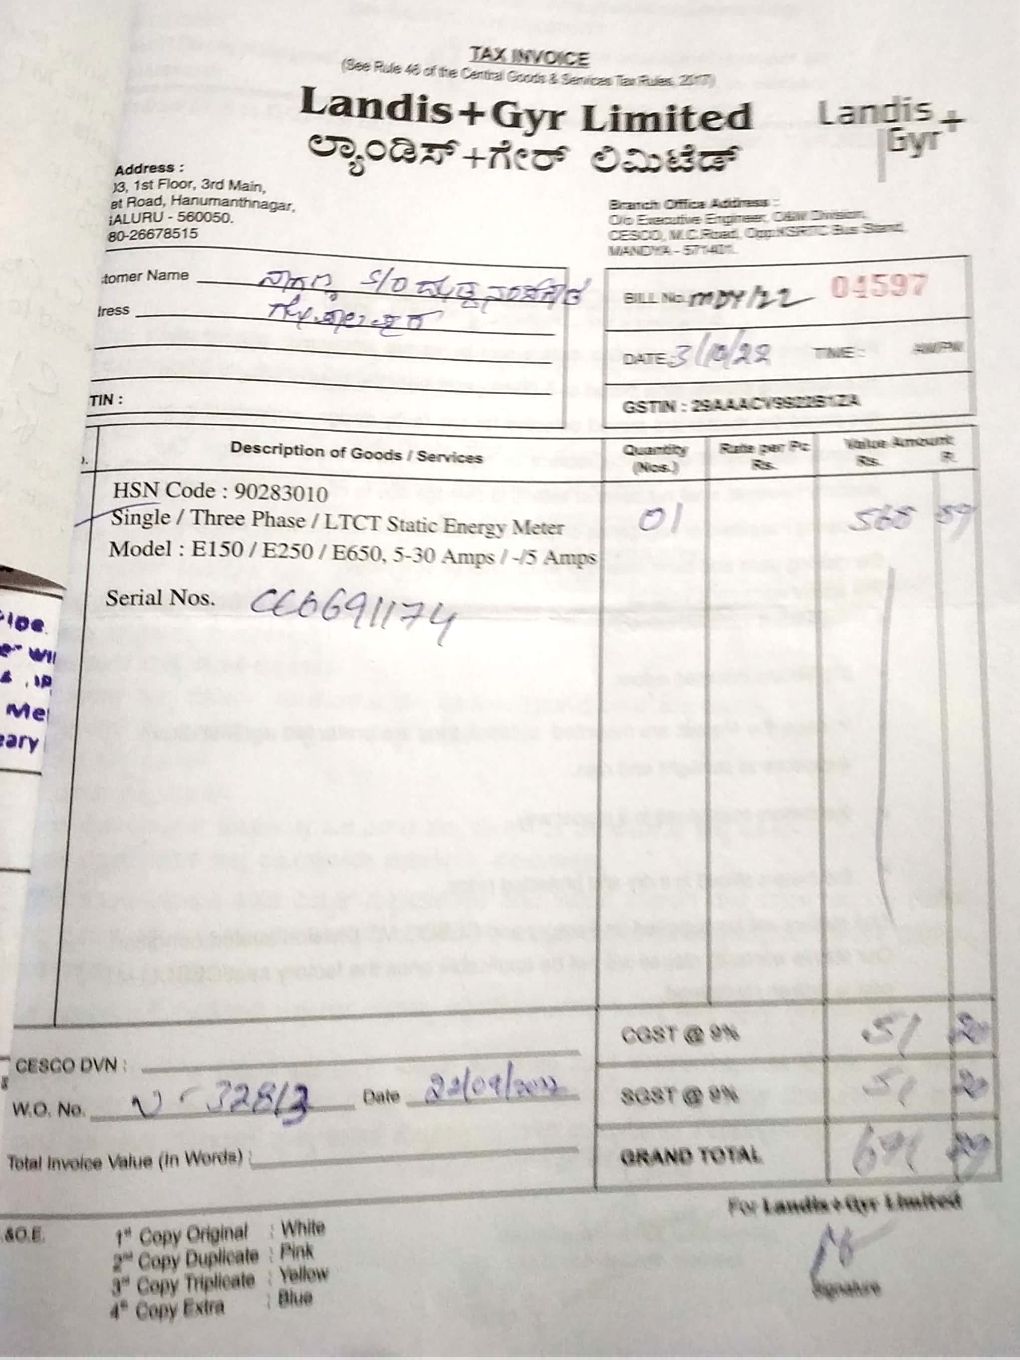 TAX INVOICE
(See Rule 46 of the Central Goods & Services Tax Rules, 2017)
Landis+Gyr Limited
ಲ್ಯಾಂಡಿಸ್+ಗೇರ್ ಲಿಮಿಟೆಡ್
Landis+
Gyr
Address :
03, 1st Floor, 3rd Main,
et Road, Hanumanthnagar,
ALURU - 560050.
80-26678515
Branch Office Address :
O/o Executive Engineer, O&M Division,
CESCO, M.C.Road, Opp.KSRTC Bus Stand,
MANDYA - 571401.
tomer Name S/O
dress
TIN :
BILL No. MDY/22 04597
DATE: 3/10/22 TIME : AM/PM
GSTIN : 29AAACV9922B1ZA
Description of Goods / Services Quantity (Nos.) Rate per Pc Rs. Value Amount Rs. P.
HSN Code : 90283010
Single / Three Phase / LTCT Static Energy Meter 01 568 89
Model : E150 / E250 / E650, 5-30 Amps / -/5 Amps
Serial Nos. CE0691174
CGST @ 9% 51 20
SGST @ 9% 51 20
GRAND TOTAL
CESCO DVN :
W.O. No. Date 22/09/2022
Total Invoice Value (In Words) :
For Landis+Gyr Limited
Signature
&O.E.
1st Copy Original : White
2nd Copy Duplicate : Pink
3rd Copy Triplicate : Yellow
4th Copy Extra : Blue